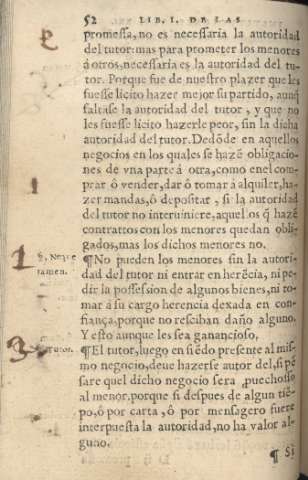 52 LIB. I. DE LAS
promessa, no es necessaria la autoridad
del tutor: mas para prometer los menores
á otros, necessaria es la autoridad del tu-
tor. Porque fue de nuestro plazer que les
fuesse licito hazer mejor su partido, aunq̃
faltase la autoridad del tutor, y que no
les fuesse licito hazerle peor, sin la dicha
autoridad del tutor. Dedõde en aquellos
negocios en los quales se hazẽ obligacio-
nes de vna parte á otra, como en el com-
prar ó vender, dar ó tomar á alquiler, ha-
zer mandas, ó depositar, si la autoridad
del tutor no interuiniere, aquellos q̃ hazẽ
contrattos con los menores quedan obli-
gados, mas los dichos menores no.
§. Neque
tamen.
¶No pueden los menores sin la autori-
dad del tutor ni entrar en herẽcia, ni pe-
dir la possession de algunos bienes, ni to-
mar á su cargo herencia dexada en con-
fiança, porque no resciban daño alguno.
Y esto aunque les sea ganancioso.
§. Tutor.
¶El tutor, luego en siẽdo presente al mis-
mo negocio, deue hazerse autor del, si pẽ
sare quel dicho negocio sera prouechoso
al menor. porque si despues de algun tiẽ-
po, ó por carta, ó por mensagero fuere
interpuesta la autoridad, no ha valor al-
guno.
¶ Si